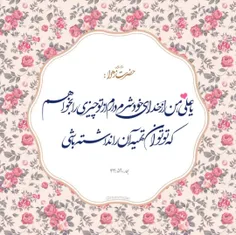 حضرت زهرا:
یا علی من از خدای خود شرم دارم از تو چیزی را بخواهم
که تو توان تهیه آن را نداشته باشی